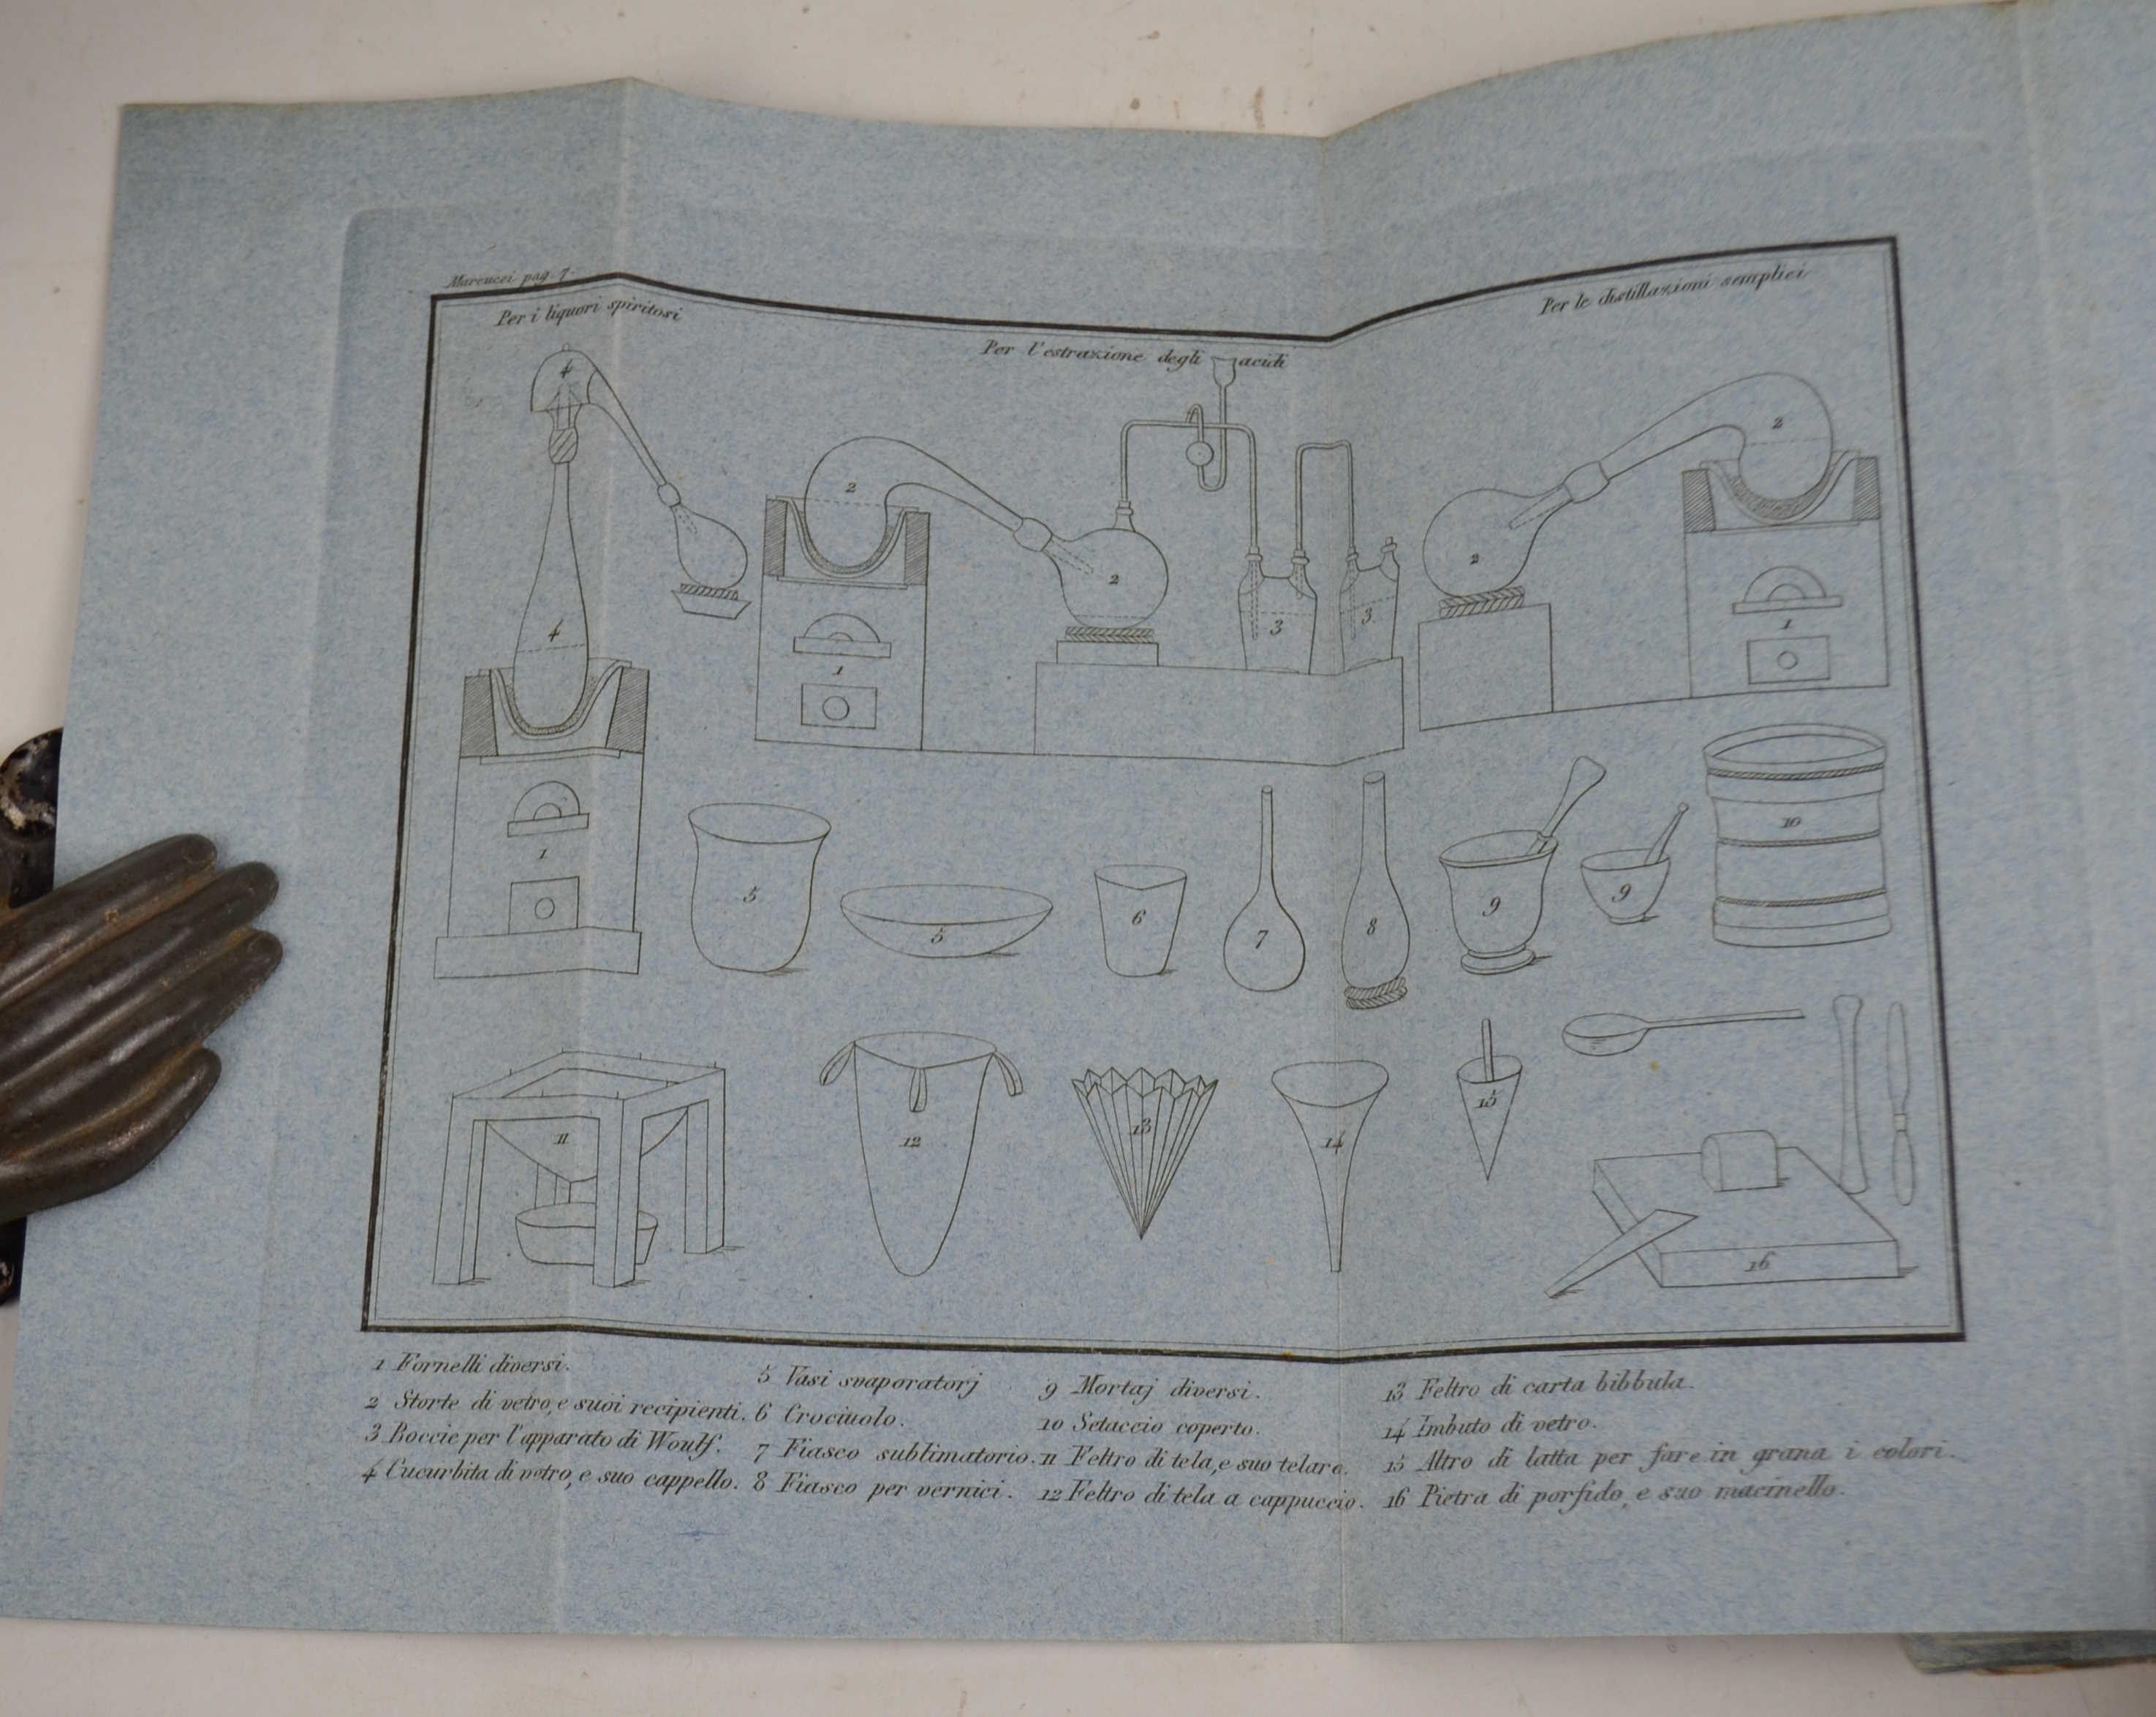 Marcucci pag. 7.
Per i liquori spiritosi
Per l'estrazione degli acidi
Per le distillazioni semplici
4
2
2
3
3
2
2
4
1
1
1
5
5
6
7
8
9
9
10
11
12
13
14
15
16
1 Fornelli diversi.
2 Storte di vetro, e suoi recipienti.
3 Boccie per l'apparato di Woulf.
4 Cucurbita di vetro, e suo cappello.
5 Vasi svaporatorj
6 Crociuolo.
7 Fiasco sublimatorio.
8 Fiasco per vernici.
9 Mortaj diversi.
10 Setaccio coperto.
11 Feltro di tela, e suo telaro.
12 Feltro di tela a cappuccio.
13 Feltro di carta bibbula.
14 Imbuto di vetro.
15 Altro di latta per fare in grana i colori.
16 Pietra di porfido, e suo macinello.